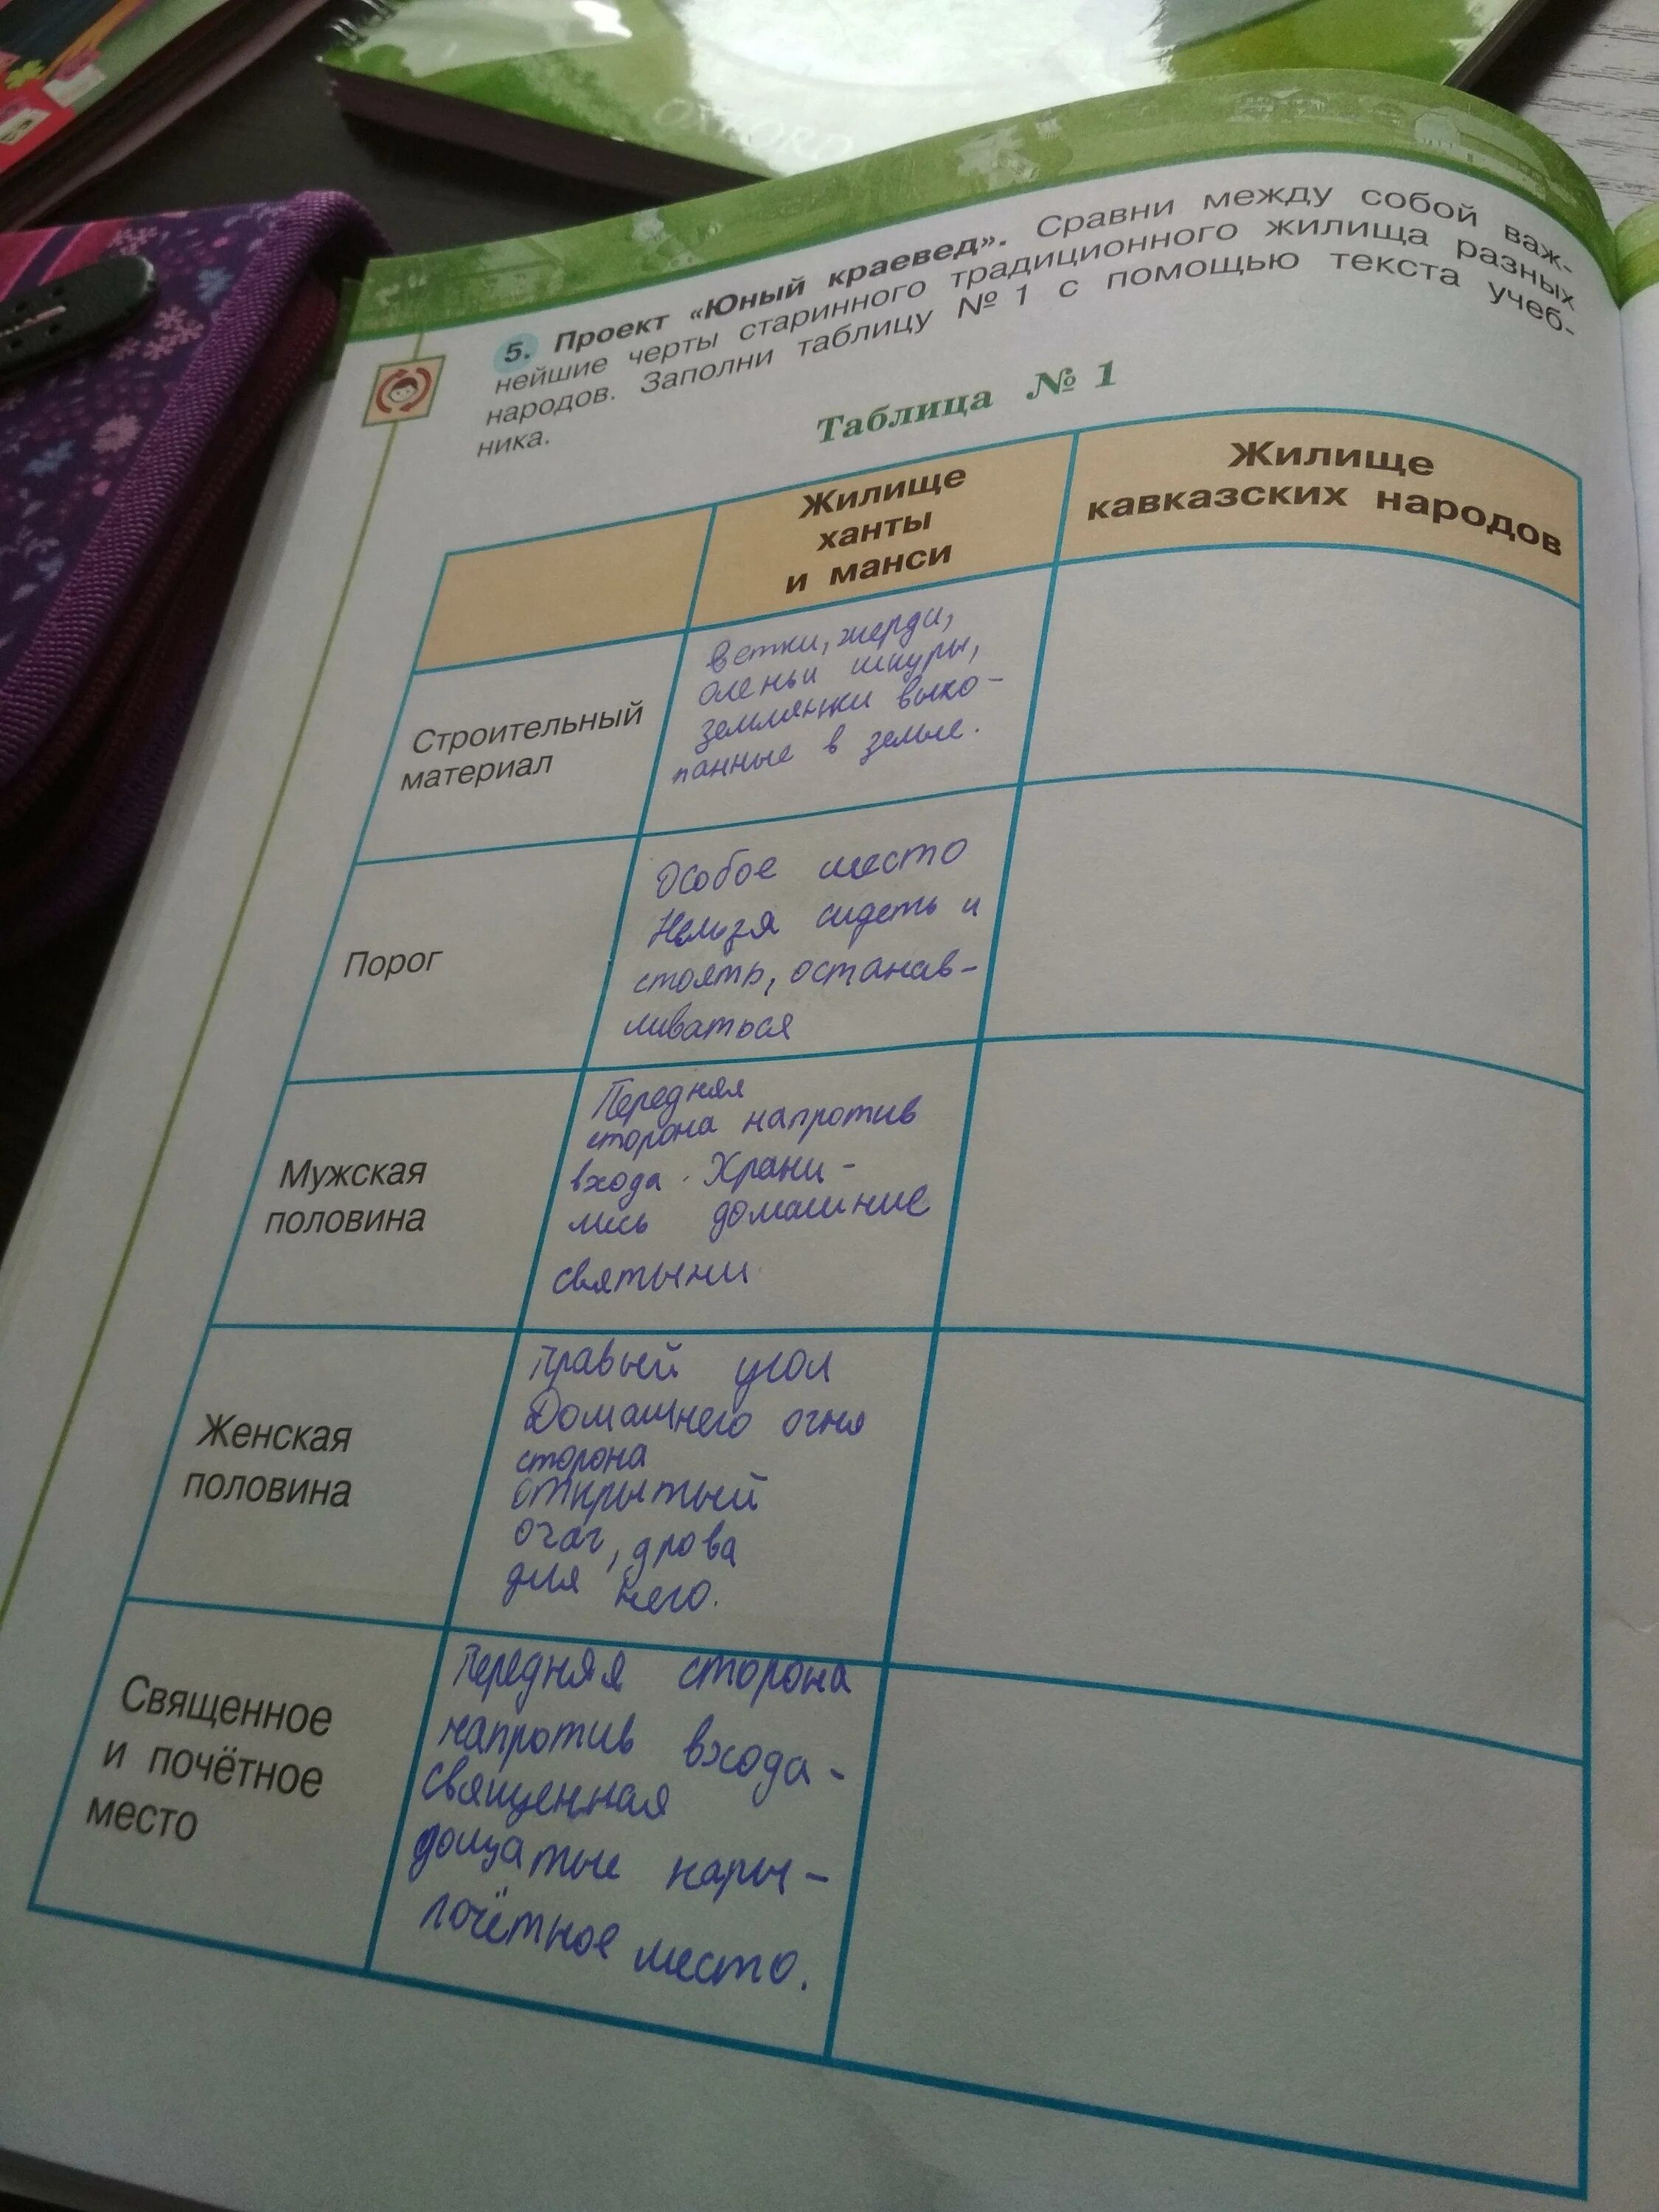 OXFORD
5. Проект «Юный краевед». Сравни между собой важ-
нейшие черты старинного традиционного жилища разных
народов. Заполни таблицу № 1 с помощью текста учеб-
ника.
Таблица № 1
Жилище
ханты
и манси
Жилище
кавказских народов
Строительный
материал
ветки, жерди,
оленьи шкуры,
землянки выко-
панные в земле.
Порог
Особое место
Нельзя сидеть и
стоять, останав-
ливаться
Мужская
половина
Передняя
сторона напротив
входа. Храни-
лись домашние
святыни
Женская
половина
Правый угол
Домашнего огня
сторона
открытый
очаг, дрова
для него.
Священное
и почётное
место
Передняя сторона
напротив входа-
священная
дощатые нары-
почётное место.